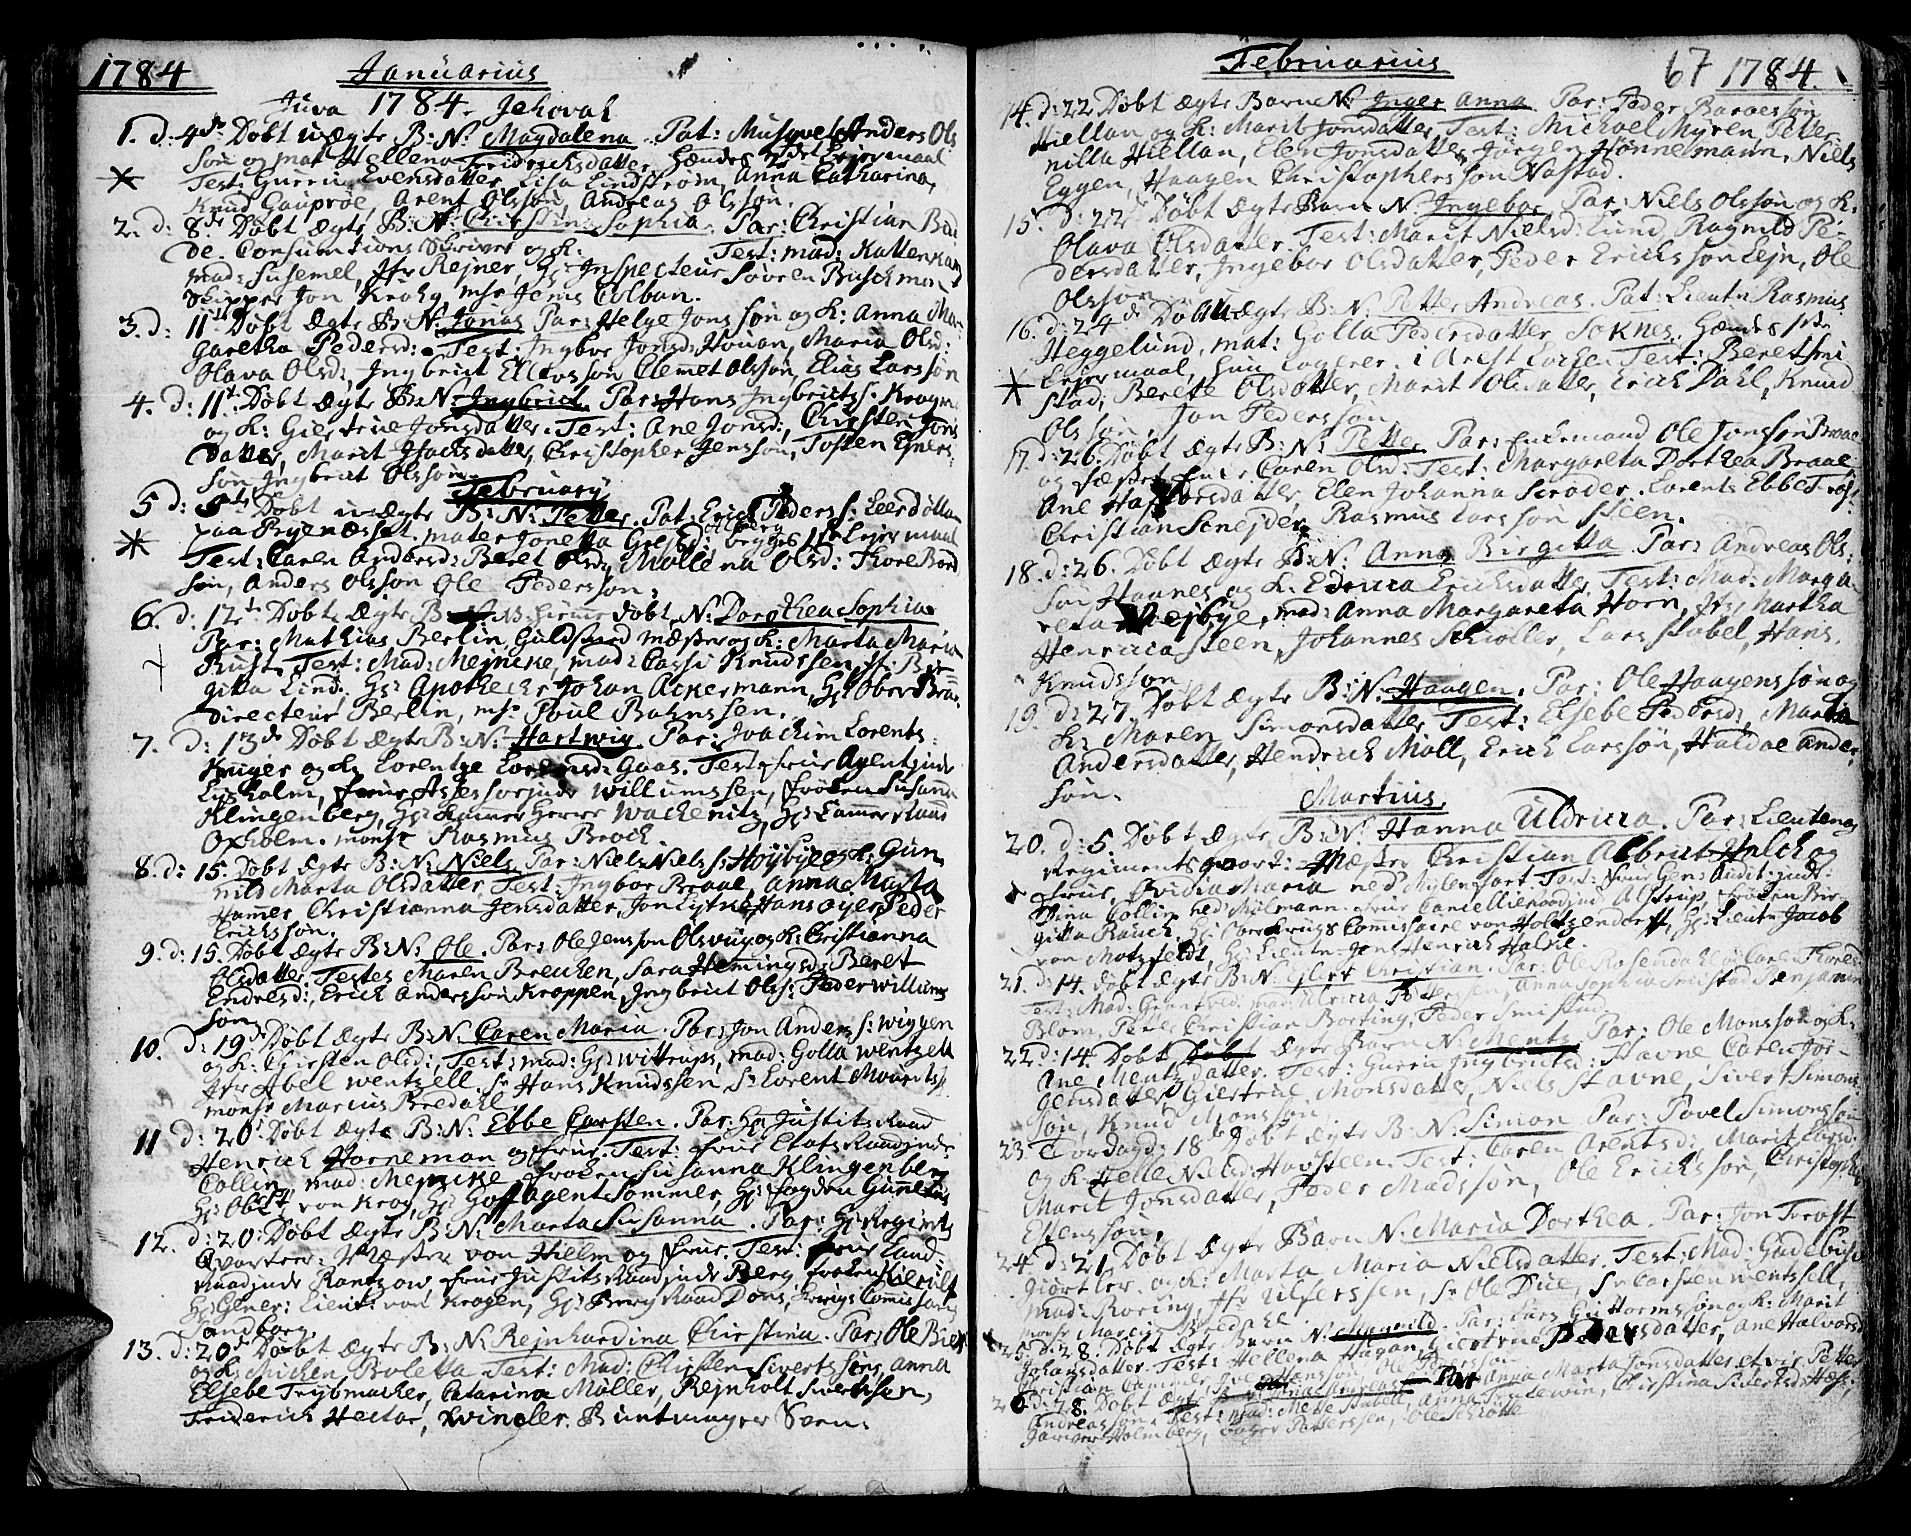 1784 Januarius
Juva 1784. Jehovah
1. d: 4de Døbt uægte B: N: Magdalena. Pat: Musqvet: Anders Ols
søn og mat Hellena Fridrichsdatter Hændes 2det Lejermaal
Test: Gurru Evensdatter, Lisa Lindstrøm, Anna Catharina,
Knud Gauproe, Arent Olssøn, Andreas Olssøn.
2. d: 8de Døbt ægte B: N: Christina Sophia. Par: Christian
de. Consumtions Skriver og K: Test: mad: Katter
mad: Susemel, Jfr Rejner, Hr Inspecteur Søvren Buschman
Skipper Jon Krohg, msr Jems Colban.
3. d: 11te Døbt Ægte B: N: Jonas Par: Helge Jonssøn og K: Anna Ma
garetha Pedersd: Test: Ingbor Jonsd: Houan, Maria Olsd:
Olava Olsd:, Ingbrict Ellevssøn Clemet Olssøn, Elias Larssøn
4. d: 11te Døbt ægte B: N: Ingbrict. Par: Hans Ingbricts: Krogn
og K: Giertrue Jonsdatter. Test: Ane Jonsd:, Chirsten Jons
datter, Marit Isachsdatter, Christopher Jenssøn, Tosten Ejners
søn Ingbrict Olssøn.
February
5 d: Døbt uægte B: N: Petter. Pat: Erich Peders: Leerdølla
paa Byenæsset. mater Jonetta begges 1ste Lejermaal
Test: Caren Andersd: Beret Olsd: Mollena Olsd: Thore Bord
søn, Anders Olssøn Ole Pederssøn.
6. d: 12te Døbt Ægte B: hjemme døbt, N: Dorothea Sophia
Par: Mathias Berlin Guldsmed mæster og K: Marta Maria
Rust. Test: Mad: Mejncke, mad: Cassi Knudssen, Jf: Bir
gitta Lind, Hr: Apothecker Johan Ackermann, Hr: Ober
Directeur Berlin, msr Poul Bahnssen.
7. d: 13de Døbt ægte B: N: Hartwig. Par: Joachim Lorents
Krüger og K: Lorentze Gaas. Test: frue Agentinde
Lysholm, frue Assessorinde Willumssen, frøken Susanna
Klingenberg, Hr: Kammer Herre Wackenitz, Hr: Cammer Raad
Oxholm. monsr Rasmus Broch.
8. d: 15. Døbt ægte B: N: Niels. Par: Niels Niels s: Høybye og K: Gun
nild Marta Olsdatter Test: Ingbor Braae, Anna Marta
Hamer Christianna Jensdatter, Jon Hans Oyer, Peder
Erichssøn.
9. d: 15. Døbt ægte B: N: Ole. Par: Ole Jenssøn Olsvüg og K: Christianna
Olsdatter. Testes Maren Breucken, Sara Hemingsd: Beret
Endresd:, Erich Anderssøn Kroppen, Ingbrict Olss: Peder Willums
søn.
10. d: 19de Døbt Ægte B: N: Caren Maria. Par: Jon Anders s: Wiggen
og K: Chirsten Olsd:, Test: mad: Hr: Wittrups, mad: Golla Wentzell
Jfr Abel Wentzell. Sr Hans Knudssen Sr Lorent Mouritss
monsr Marcus Bredahl
11 d: 20de Døbt Ægte B: N: Ebbe Carsten. Par: Hr Justits Raad
Henrich Horneman og frue. Test: frue Etats Raadinde
Collin, mad: Mejncke frøken Susanna Klingenberg
Hr: Obrist von Krog, Hr: Hoff Agent Sommer, Hr: fogden
12. d: 20: Døbt Ægte B: N: Marta Susanna. Par: Hr: Regimts
Qvarteer Mæster von Hielm og frue. Test: frue Land-
Raadinde Rantzow, frue Justits Raadinde Berg, frøken
Hr: Gener: Lieut: von Krogen, Hr: Berg Raad Dons, Krigs Comissarius
Sandborg.
13. d: 20de Døbt ægte B: N: Rejnhardina Chirstina. Par: Ole
og K: Micken Boletta Test: Mad: Chirsten Sivertssøns, Anna
Elsebe Trybmacher, Catarina Møller, Rejnholt Sivertssen,
Friderich Hector, Kvinder. Buntmager Sven.
Februarius 67 1784.
14. d: 22 Døbt Ægte Barn N: Inger Anna Par: Peder Baroessøn
Hiellan og K: Marit Jonsdatter, Test: Michael Myren Peter-
nilla Hiellan, Elen Jonsdatter, Jørgen Hønnemann, Niels
Eggen, Haagen Christopherssøn Nastad.
15. d: 22de Døbt Ægte Barn N: Ingebor Par: Niels Olssøn og K:
Olava Olsdatter. Test: Marit Nielsd: Lund, Ragnild Pe-
dersdatter, Ingebor Olsdatter, Peder Erichssøn Lejn, Ole
Olssøn
16. d: 24de Døbt uægte B: N: Petter Andreas. Pat: Lieutn Rasmus
Heggelund, mat: Golla Pedersdatter Soknes. Hændes 1ste
Lejermaal, i Test: Beret Smi
stad, Berete Olsdatter, Marit Olsdatter, Erich Dahl, Knud
Olssøn, Jon Pederssøn.
17. d: 26. Døbt ægte B: N: Petter Par: Enkemand Ole Jonssøn Braae
og Caren Olsd: Test: Margareta Dorthea Braae,
Ane Elen Johanna Scrøder. Lorents Ebbe
Christian Snejder Rasmus Larssøn Steen.
18. d: 26. Døbt ægte B: N: Anna Birgitta Par: Andreas Ols:
søn Haanes og K: Edrica Erichsdatter Test: Mad: Marga
reta Wejbye, mad: Anna Margareta Horn, Jfr Martha
Henricca Steen, Johannes Schiøller, Lars Stabel, Hans
Knudssøn
19. d: 27. Døbt ægte B: N: Haagen. Par: Ole Haagenssøn og
K: Maren Simonsdatter Test: Elsebe Pedersd:, Marta
Andersdatter, Hendrich Moll, Erich Larssøn, Haldoe Anders
søn.
Martius.
20. d: 5. Døbt ægte B: N: Hanna Uldricca. Par: Lieuten og
Regiments Qvart: Mæster Christian Albrict Hulch og
frue, Ovidia Maria ned Mylenfort. Test: frue Gen: Audit: inde
Anna Collin ned Mølmann. frue Cancellieraadinde Alstrup, frøken Bir
gitta Rauch, Hr: Ober Krigs Comissaire von Holtzendorff, Hr: Lieutn Jacob
von Motzfeldt, Hr: Lieutn: Jens Henrich
21. d: 14. Døbt ægte B: N: Christian. Par: Ole Rosendahl og Caren Thores
Test: Mad: mad: Ulricca Anna Sophia Smistad Benjamin
Blom, Christian Borting, Peder Smistad
22. d: 14. Døbt Døbt Ægte Barn N: Mentz Par: Ole Monssøn og K:
Ane Mentzdatter. Test: Gurru Ingbrictsd: Stavne Caren Jør-
gensdatter Giertrue Monsdatter, Niels Stavne, Sivert Simons
søn, Knud Monssøn
23. Torsdag d: 18de Døbt ægte B: N: Simon Par: Povel Simonssøn
og K: Helle Nielsd: Havsteen. Test: Caren Arentsd:, Marit Larsd:
Marit Jonsdatter, Peder Madssøn, Ole Erichssøn, Christopher
Estenssøn.
24 d: 21 Døbt Ægte Barn N: Maria Dorthea. Par: Jon Trost
Giørtler. og K: Marta Maria Nielsdatter. Test: Mad: Gadebusch
mad: Roring, Jfr Ulferssen, Sr Ole Due, Sr Carsten Wentssell,
monsr Marcus Bredahl
25. d: 28. Døbt Ægte Barn N: Magnild. Par: Lars Guttormssøn og K: Marit
Johansdatter. Test: Hellena Hagan, Giertrue Pedersdatter, Ane Halvorsd
Christian Cammer, Ole Pederssøn
26 d: 28. Døbt Ægte B: Par: Anna Marta Jonsdatter et vir Petter
Andreassøn. Test: Mad: Mette Stabell, Christina Sivertsd: Hoff,
Holmberg, Petterssen, Ole Schiøtte